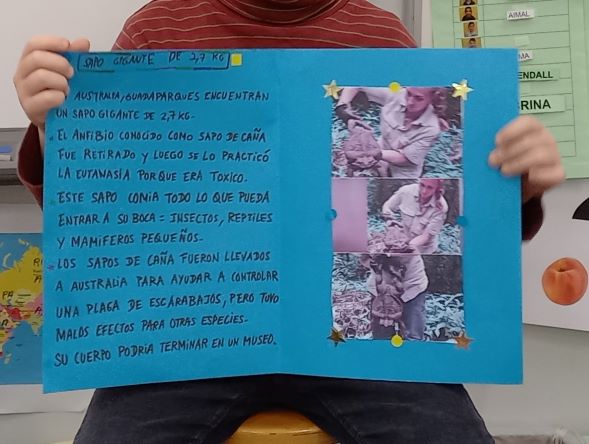 SAPO GIGANTE DE 2,7 KG
AUSTRALIA, GUARDAPARQUES ENCUENTRAN
UN SAPO GIGANTE DE 2,7 KG-
EL ANFIBIO CONOCIDO COMO SAPO DE CAÑA
FUE RETIRADO Y LUEGO SE LO PRACTICÓ
LA EUTANASIA PORQUE ERA TOXICO.
ESTE SAPO COMIA TODO LO QUE PUEDA
ENTRAR A SU BOCA = INSECTOS, REPTILES
Y MAMIFEROS PEQUEÑOS-
LOS SAPOS DE CAÑA FUERON LLEVADOS
A AUSTRALIA PARA AYUDAR A CONTROLAR
UNA PLAGA DE ESCARABAJOS, PERO TUVO
MALOS EFECTOS PARA OTRAS ESPECIES-
SU CUERPO PODRIA TERMINAR EN UN MUSEO.
AIMAL
MA
ENDALL
RINA